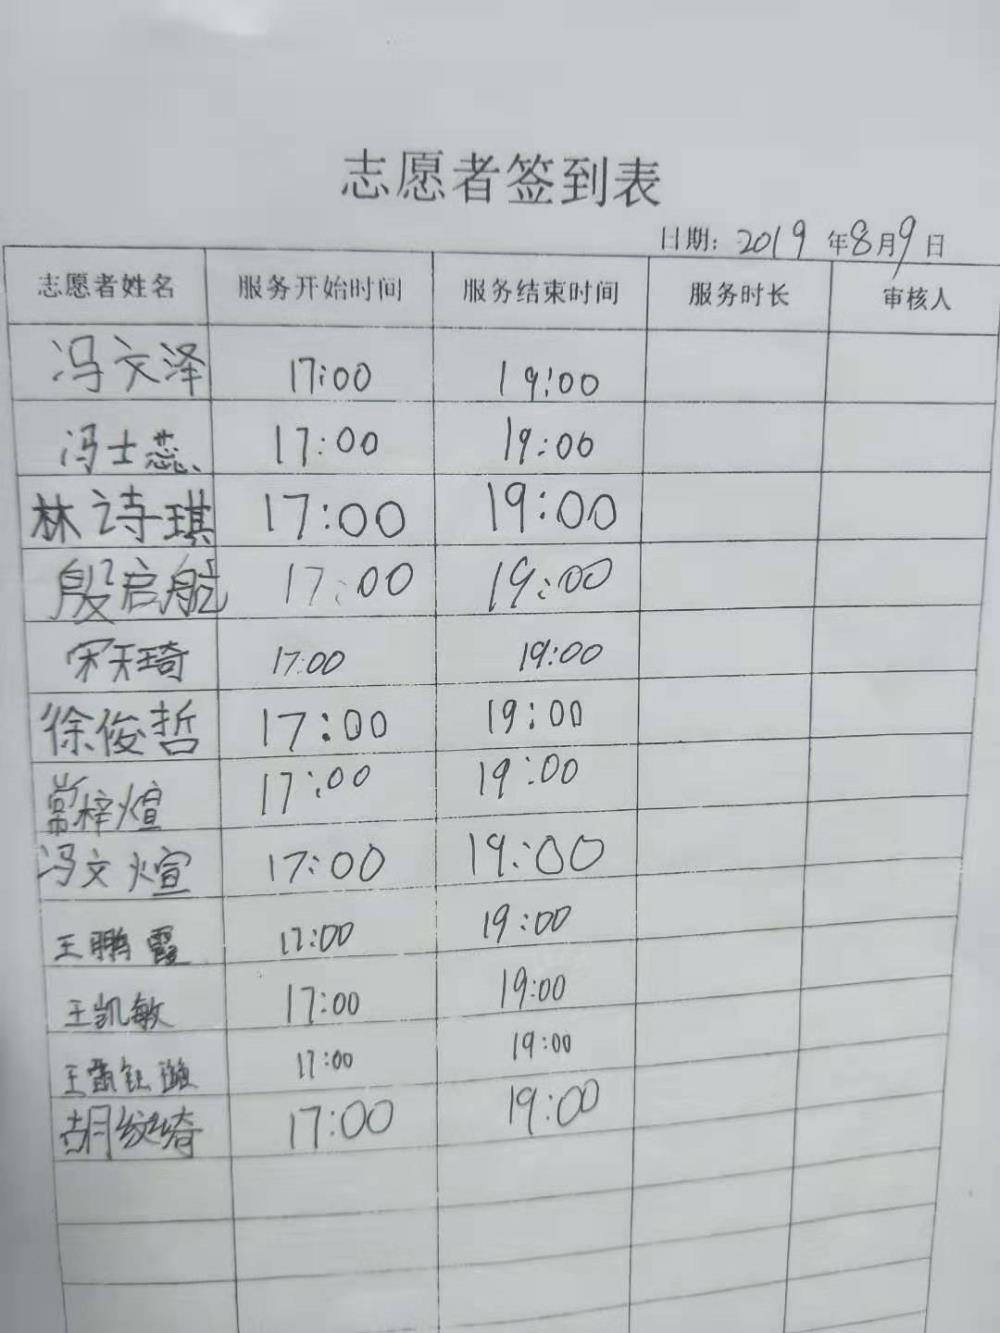 志愿者签到表
日期: 2019 年8月9日
志愿者姓名 服务开始时间 服务结束时间 服务时长 审核人
冯文泽 17:00 19:00
冯士蕊 17:00 19:00
林诗琪 17:00 19:00
殷启航 17:00 19:00
宋天琦 17:00 19:00
徐俊哲 17:00 19:00
常梓煊 17:00 19:00
冯文煊 17:00 19:00
王鹏霞 17:00 19:00
王凯敏 17:00 19:00
王 钰璇 17:00 19:00
胡纹绮 17:00 19:00